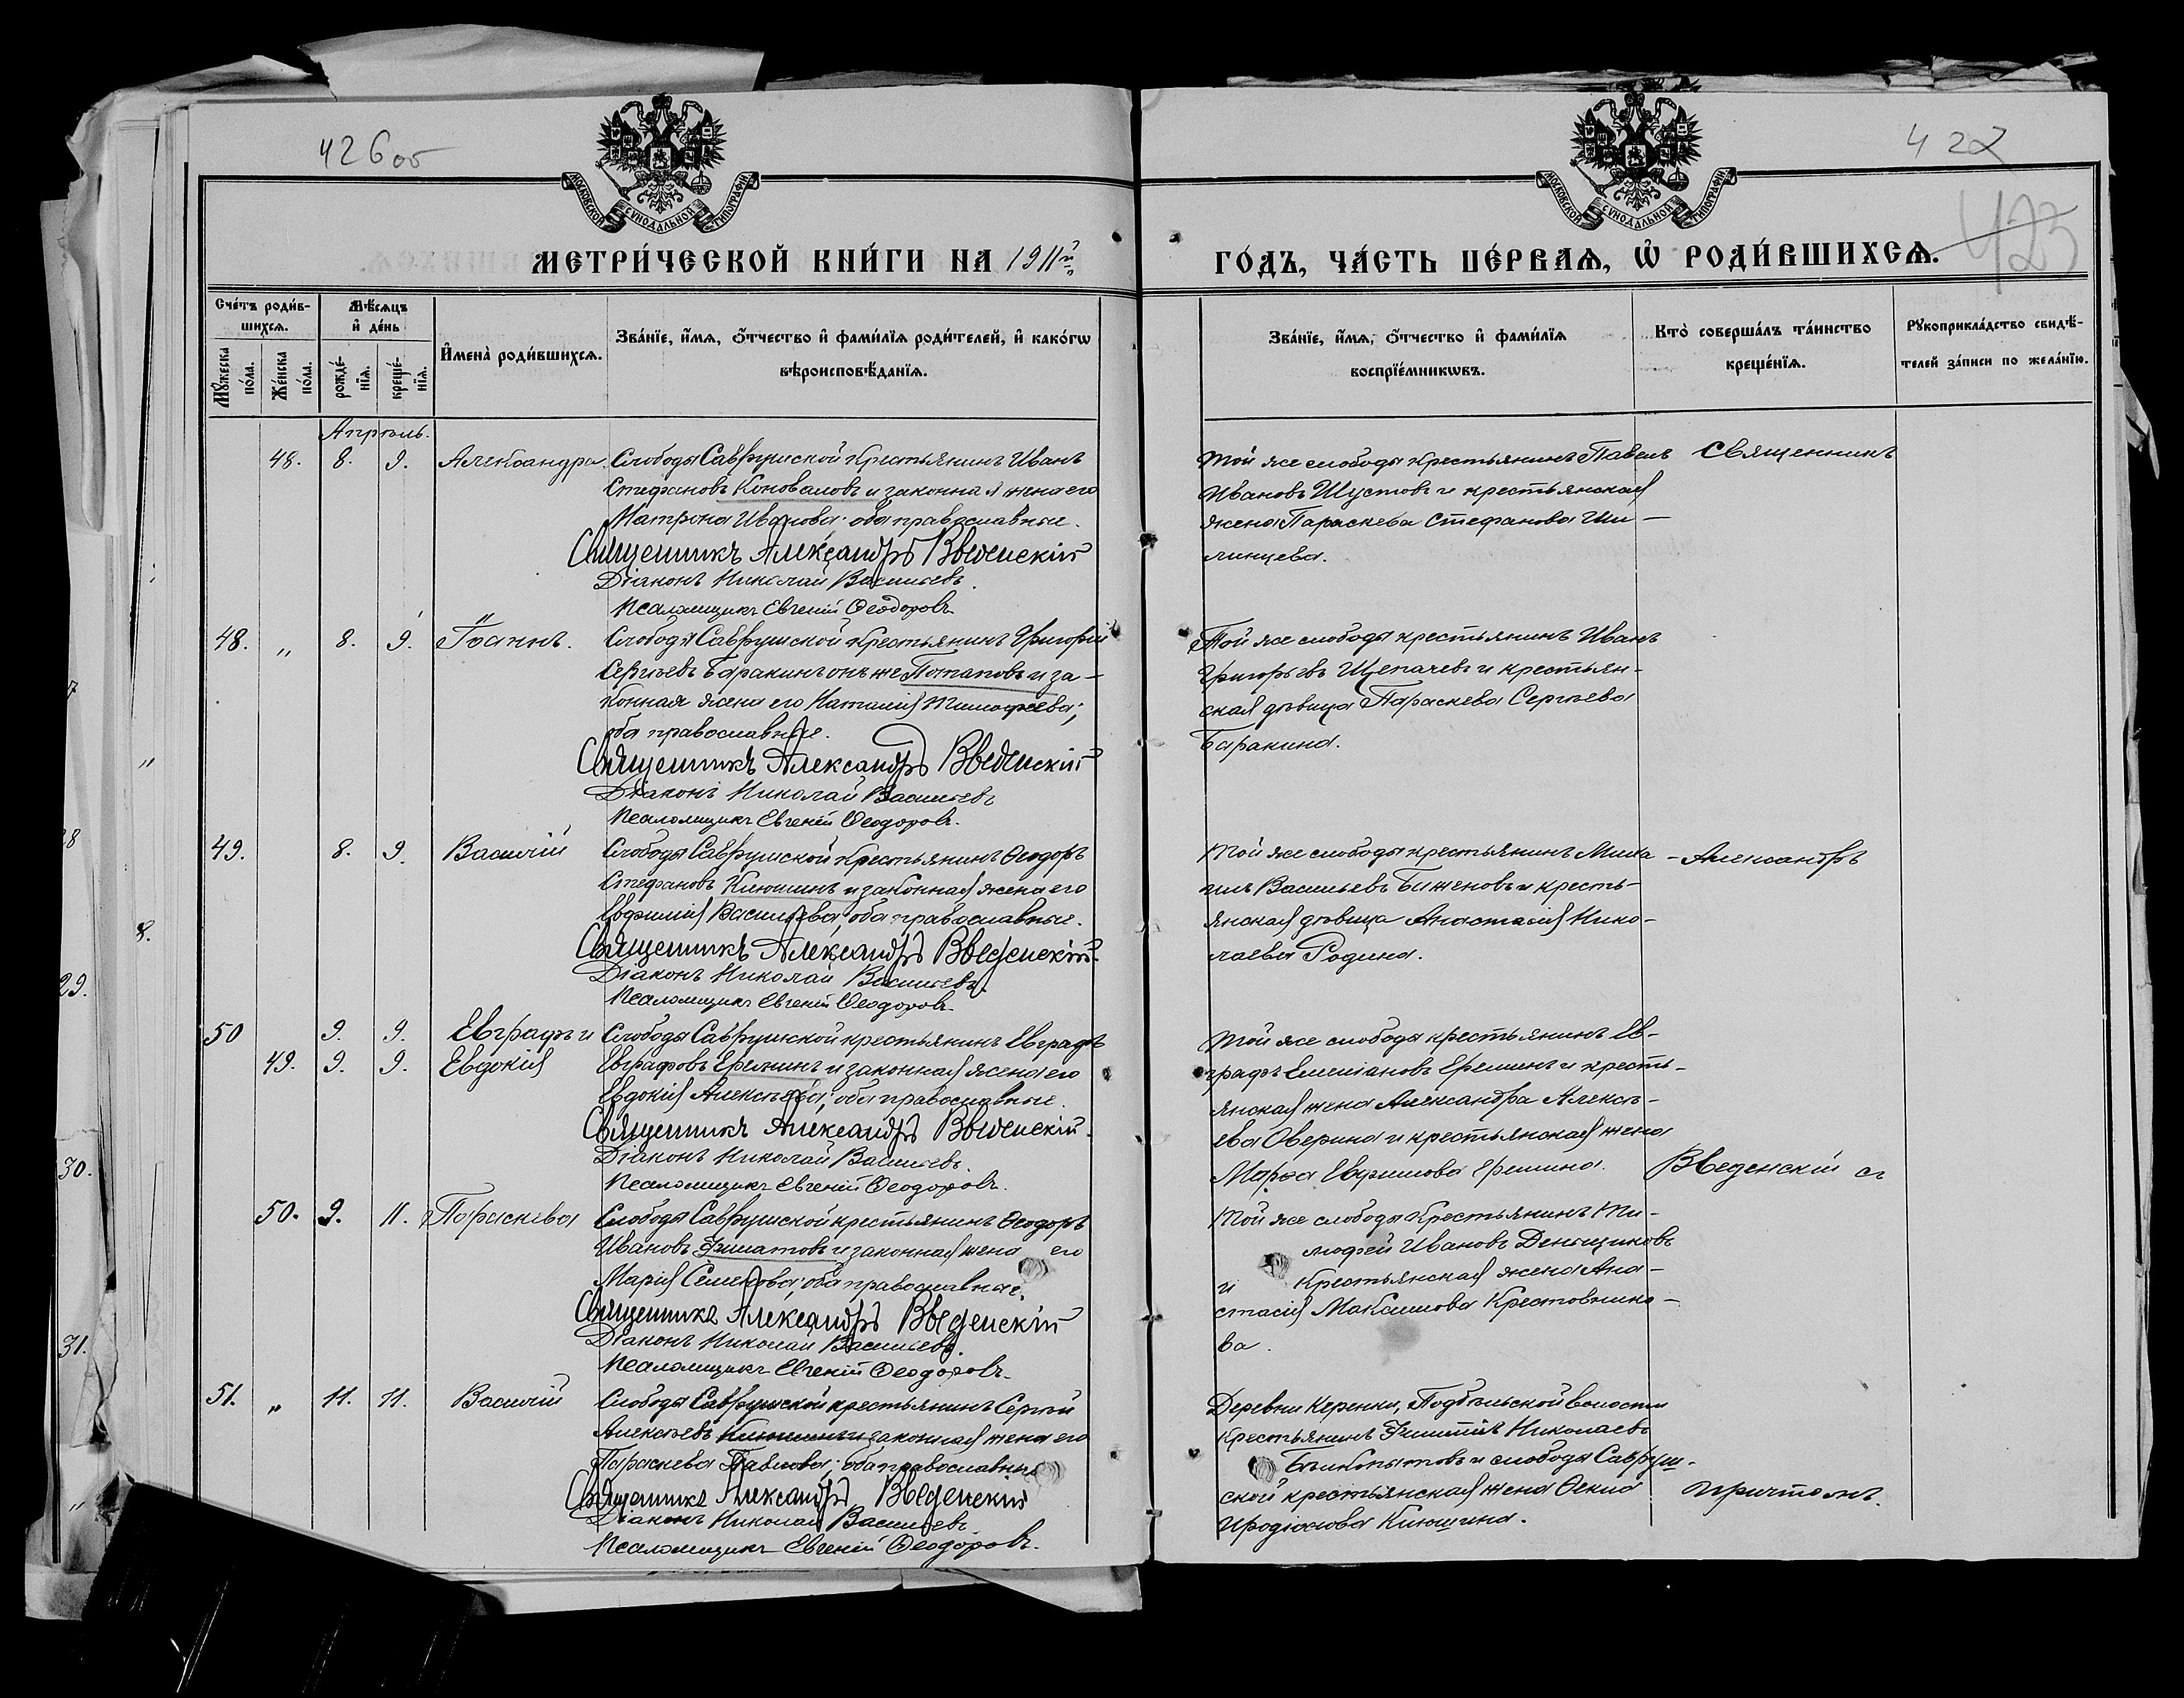 426об
422
423
МОСКОВСКОЙ СѴНОДАЛЬНОЙ ТИПОГРАФІИ
МОСКОВСКОЙ СѴНОДАЛЬНОЙ ТИПОГРАФІИ
МЕТРИ́ЧЕСКОЙ КНИ́ГИ НА 1911й
ГО́ДЪ, ЧА́СТЬ ПЕ́РВАѦ, Ѽ РОДИ́ВШИХСѦ.
Сче́тъ роди́в-
шихсѧ.
Мꙋ́жеска по́ла.
Же́нска по́ла.
Мѣ́сѧцъ
и҆ де́нь
рожде́-
нїѧ.
креще́-
нїѧ.
И҆мена̀ роди́вшихсѧ.
Зва́нїе, и҆́мѧ, ѻ҆́тчество и҆ фами́лїѧ роди́телей, и҆ како́гѡ
вѣроисповѣ́данїѧ.
Зва́нїе, и҆́мѧ, ѻ҆́тчество и҆ фами́лїѧ
воспрїе́мникѡвъ.
Кто̀ соверша́лъ та́инство
креще́нїѧ.
Рꙋкоприкла́дство свидѣ́-
телей за́писи по жела́нїю.
Апрѣль.
48. 8. 9. Александра.
Слободы Саврушской крестьянинъ Иванъ
Стефановъ Коноваловъ и законная жена его
Матрона Иванова; оба православные.
Священникъ Александръ Введенскій
Діаконъ Николай Васильевъ.
Псаломщикъ Евгеній Ѳеодоровъ
Той же слободы крестьянинъ Павелъ
Ивановъ Шустовъ и крестьянская
жена Параскева Стефанова Ши-
линцева.
Священникъ
48. " 8. 9. Іоаннъ.
Слободы Саврушской крестьянинъ Григорій
Сергѣевъ Баракинъ онъ же Потаповъ и за-
конная жена его Наталія Тимофеева;
оба православные.
Священникъ Александръ Введенскій
Діаконъ Николай Васильевъ
Псаломщикъ Евгеній Ѳеодоровъ.
Той же слободы крестьянинъ Иванъ
Григорьевъ Щепачевъ и крестьян-
ская дѣвица Параскева Сергѣева
Баракина.
49. 8. 9. Василій
Слободы Саврушской крестьянинъ Ѳеодоръ
Стефановъ Клюшинъ и законная жена его
Евфимія Васильева; оба православные.
Священникъ Александръ Введенскій.
Діаконъ Николай Васильевъ.
Псаломщикъ Евгеній Ѳеодоровъ
Той же слободы крестьянинъ Миха-
илъ Васильевъ Биженовъ и кресть-
янская дѣвица Анастасія Нико-
лаева Родина.
Александръ
50 9. 9. Евграфъ и
49. 9. 9. Евдокія
Слободы Саврушской крестьянинъ Евграфъ
Евграфовъ Ереминъ и законная жена его
Евдокія Алексѣева; оба православные.
Священникъ Александръ Введенскій.
Діаконъ Николай Васильевъ.
Псаломщикъ Евгеній Ѳеодоровъ.
Той же слободы крестьянинъ Ев-
графъ Емеліановъ Ереминъ и кресть-
янская жена Александра Алексѣ-
ева Оверина и крестьянская жена
Марѳа Евфимова Еремина.
Введенскій съ
50. 9. 11. Параскева
Слободы Саврушской крестьянинъ Ѳеодоръ
Ивановъ Филатовъ и законная жена его
Марія Семенова; оба православные.
Священникъ Александръ Введенскій
Діаконъ Николай Васильевъ.
Псаломщикъ Евгеній Ѳеодоровъ.
Той же слободы крестьянинъ Ти-
мофей Ивановъ Денщиковъ
и крестьянская жена Ана-
стасія Максимова Крестовнико-
ва.
51. " 11. 11. Василій
Слободы Саврушской крестьянинъ Сергѣй
Алексѣевъ Клюшинъ и законная жена его
Параскева Павлова; оба православные
Священникъ Александръ Введенскій
Діаконъ Николай Васильевъ.
Псаломщикъ Евгеній Ѳеодоровъ.
Деревни Керенки, Подбѣльской волости
крестьянинъ Филиппъ Николаевъ
Бѣлкопытовъ и слободы Савруш-
ской крестьянская жена Ѳекла
Иродіонова Клюшина.
причтомъ.
8.
29.
30.
31.